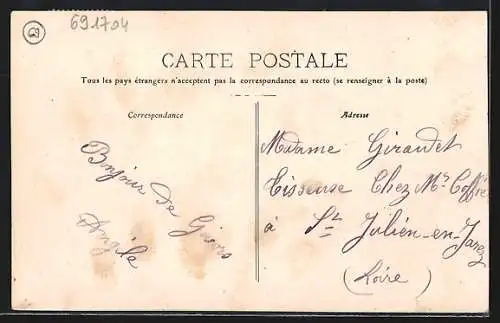 69
691704
CARTE POSTALE
Tous les pays étrangers n'acceptent pas la correspondance au recto (se renseigner à la poste)
Correspondance
Bonjour de Givors
Angèle
Adresse
Madame Giraudet
Tisseuse Chez Mr Coffre
à St Julien-en-Jarez
(Loire)